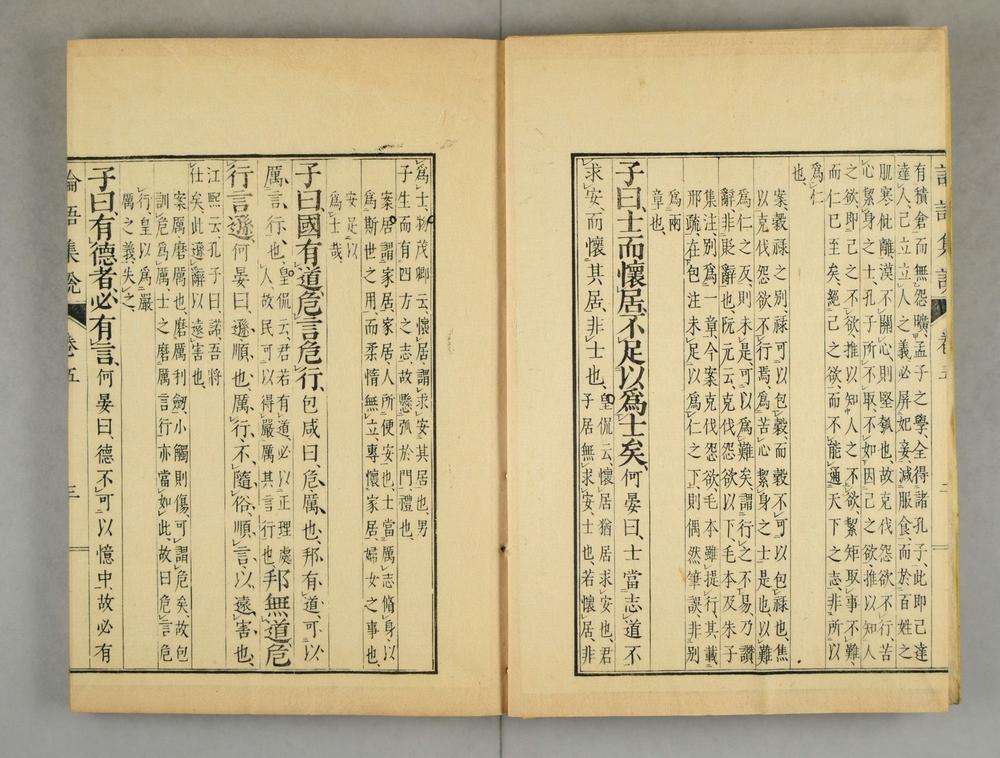 有積倉而無怨曠孟子之學全得諸孔子此即己達
達人己立立人之義必屏妃妾減服食而於百姓之
飢寒仳離漠不關心則堅瓠也故克伐怨欲不行苦
心絜身之士孔子所不取不如因己之欲推以知人
之欲即己之不欲推以知人之不欲絜矩取事不難
而仁已至矣絕己之欲而不能通天下之志非所以
爲仁
也
案穀祿之別祿可以包穀而穀不可以包祿也焦
以克伐怨欲不行焉爲苦心絜身之士是也以難
爲仁之反則未是可以爲難矣謂行之不易乃讚
辭非貶辭也阮元云克伐怨欲以下毛本及朱子
集注別爲一章今案克伐怨欲毛本雖提行其載
邢疏在包注未足以爲仁之下則偶然筆誤非別
爲兩
章也
子曰士而懷居不足以爲士矣何晏曰士當志道不
求安而懷其居非士也皇侃云懷居猶居求安也君
子居無求安士也若懷居非
爲士物茂卿云懷居謂求安其居也男
子生而有四方之志故懸弧於門禮也
案居謂家居家居人所便安也士當厲志脩身以
爲斯世之用而柔惰無立專懷家居婦女之事也
安足以
爲士哉
子曰國有道危言危行包咸曰危厲也邦有道可以
厲言行也皇侃云君若有道必以正理處
人故民可以得嚴厲其言行也邦無道危
行言遜何晏曰遜順也厲行不隨俗順言以遠害也
江熙云孔子曰諾吾將
仕矣此遜辭以遠害也
案厲磨厲也磨厲利劒小觸則傷可謂危矣故包
訓危爲厲士之磨厲言行亦當如此故曰危言危
行皇以爲嚴
厲之義失之
子曰有德者必有言何晏曰德不可以憶中故必有
論語集說 卷五 三